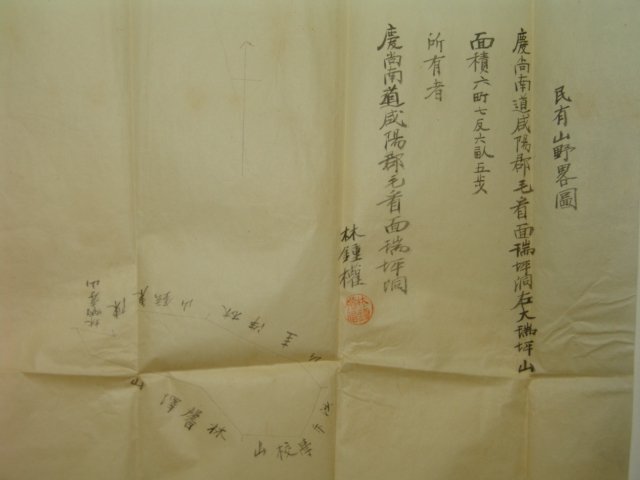 民有山野畧圖
慶尚南道咸陽郡毛看面瑞坪洞在大瑞坪山
面積六町七反六畝五步
所有者
慶尚南道咸陽郡毛看面瑞坪洞
林鍾權
林馨澤
山
學校山